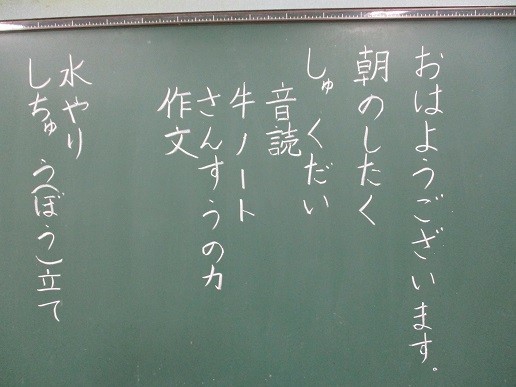 おはようございます。
朝のしたく
しゅくだい
音読
牛ノート
さんすうの力
作文
水やり
しちゅう(ぼう)立て